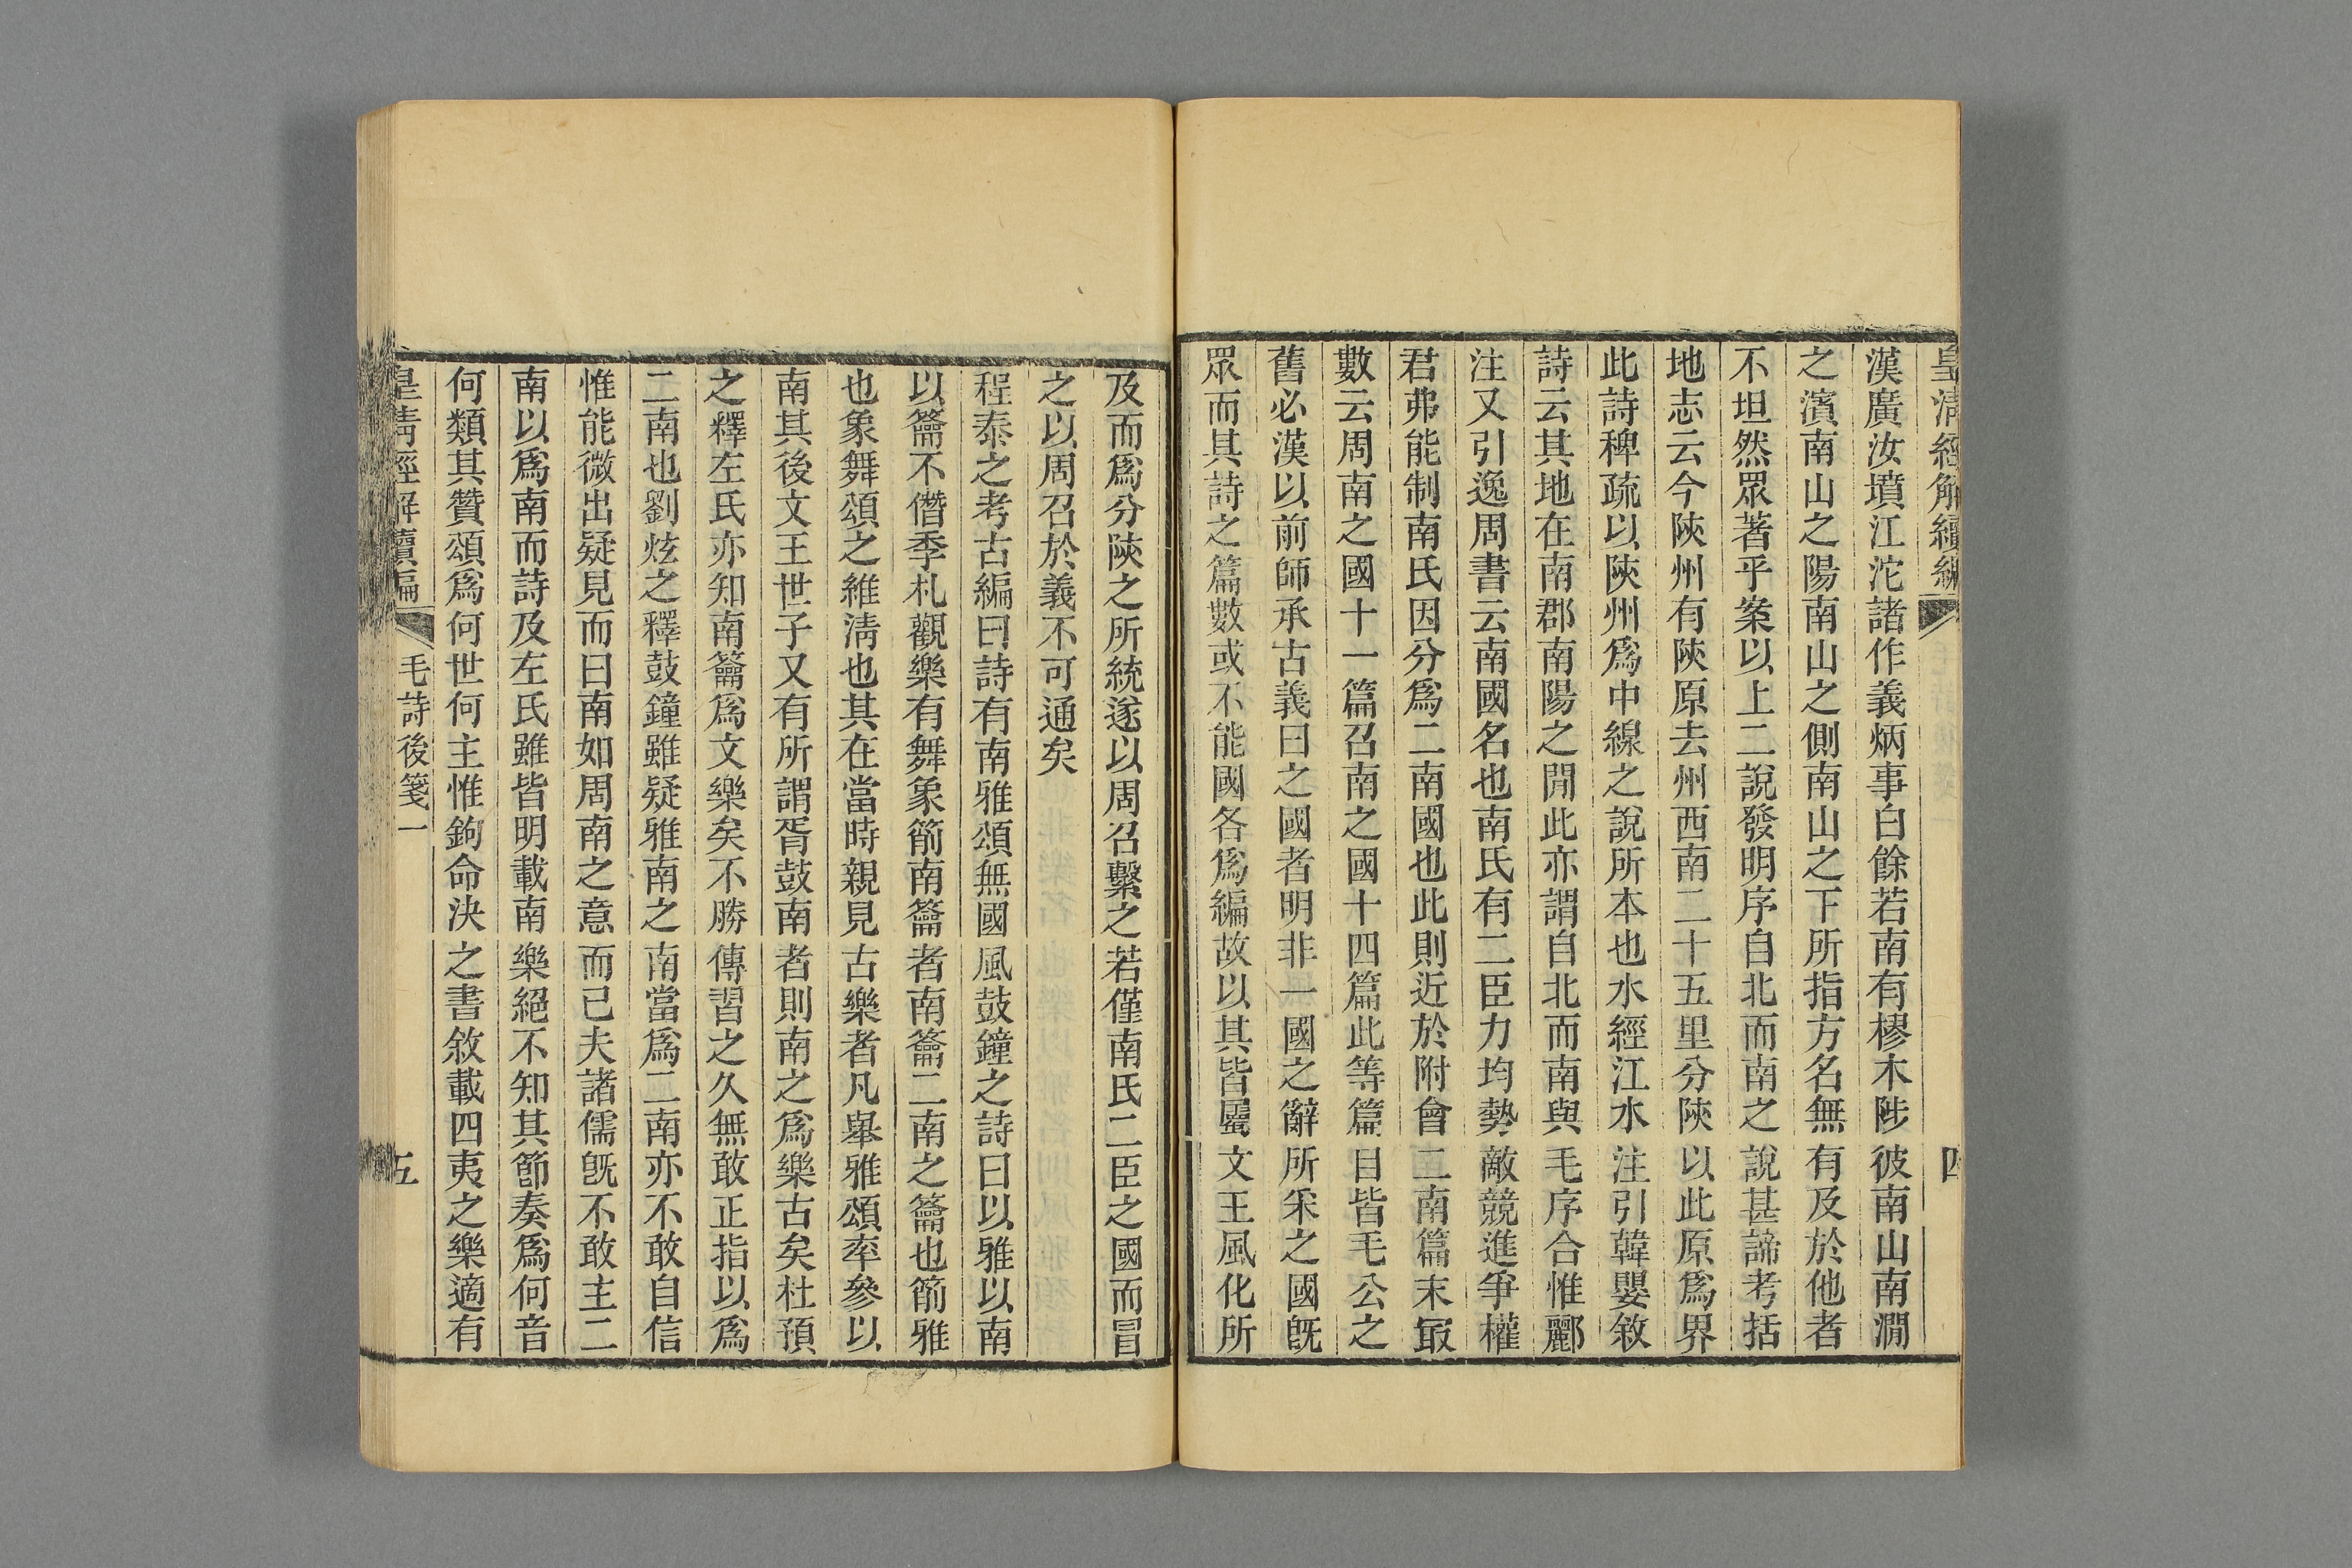 皇清經解續編
四
漢廣汝墳江沱諸作義炳事白餘若南有樛木陟彼南山南澗
之濱南山之陽南山之側南山之下所指方名無有及於他者
不坦然眾著乎案以上二說發明序自北而南之說甚諦考括
地志云今陜州有陜原去州西南二十五里分陜以此原爲界
此詩稗疏以陜州爲中線之說所本也水經江水注引韓嬰敘
詩云其地在南郡南陽之閒此亦謂自北而南與毛序合惟酈
注又引逸周書云南國名也南氏有二臣力均勢敵競進爭權
君弗能制南氏因分爲二南國也此則近於附會二南篇末冣
數云周南之國十一篇召南之國十四篇此等篇目皆毛公之
舊必漢以前師承古義曰之國者明非一國之辭所釆之國旣
眾而其詩之篇數或不能國各爲編故以其皆屬文王風化所
及而爲分陜之所統遂以周召繫之若僅南氏二臣之國而冒
之以周召於義不可通矣
程泰之考古編曰詩有南雅頌無國風鼓鐘之詩曰以雅以南
以籥不僭季札觀樂有舞象箾南籥者南籥二南之籥也箾雅
也象舞頌之維淸也其在當時親見古樂者凡舉雅頌率參以
南其後文王世子又有所謂胥鼓南者則南之爲樂古矣杜預
之釋左氏亦知南籥爲文樂矣不勝傳習之久無敢正指以爲
二南也劉炫之釋鼓鐘雖疑雅南之南當爲二南亦不敢自信
惟能微出疑見而曰南如周南之意而已夫諸儒旣不敢主二
南以爲南而詩及左氏雖皆明載南樂絕不知其節奏爲何音
何類其贊頌爲何世何主惟鉤命決之書敘載四夷之樂適有
皇清經解續編
毛詩後箋一
五